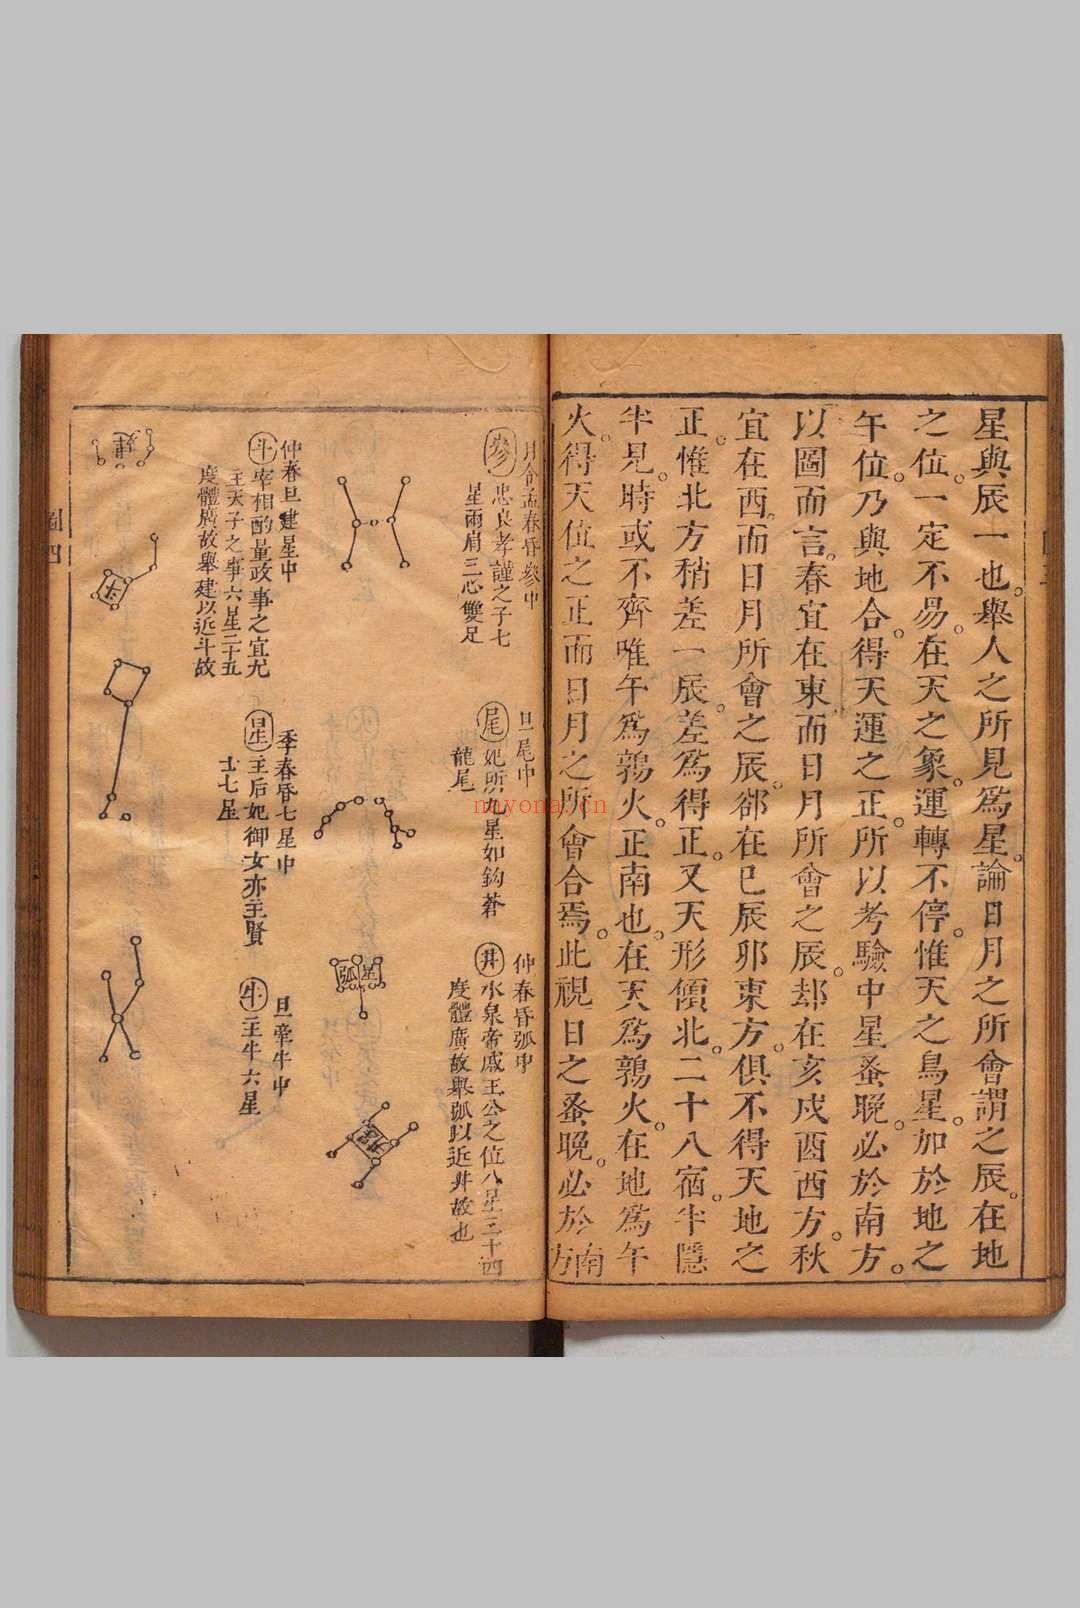 星與辰一也。舉人之所見爲星。論日月之所會謂之辰。在地
之位。一定不易。在天之象。運轉不停。惟天之鳥星。加於地之
午位。乃與地合。得天運之正。所以考驗中星蚤晚。必於南方。
以圖而言。春宜在東而日月所會之辰。却在亥戌酉西方。秋
宜在西。而日月所會之辰。郤在巳辰夘東方。俱不得天地之
正。惟北方稍差一辰。差爲得正。又天形傾北。二十八宿。半隱
半見。時或不齊唯午爲鶉火。正南也。在天爲鶉火。在地爲午
火。得天位之正而日月之所會合焉。此視日之蚤晚。必於南方
月令孟春昏參中
參 忠良孝謹之子七
星兩肩三心雙足
旦尾中
尾 妃所九星如鈎蒼
龍尾
仲春昏弧中
井 水泉帝戚王公之位八星三十四
度體廣故舉弧以近井故也
弧
仲春旦建星中
斗 宰相酌量政事之宜尤
主天子之事六星二十五
度體廣故舉建以近斗故
季春昏七星中
星 主后妃御女亦主賢
士七星
旦牽牛中
牛 主牛六星
建
圖四
nayona.cn